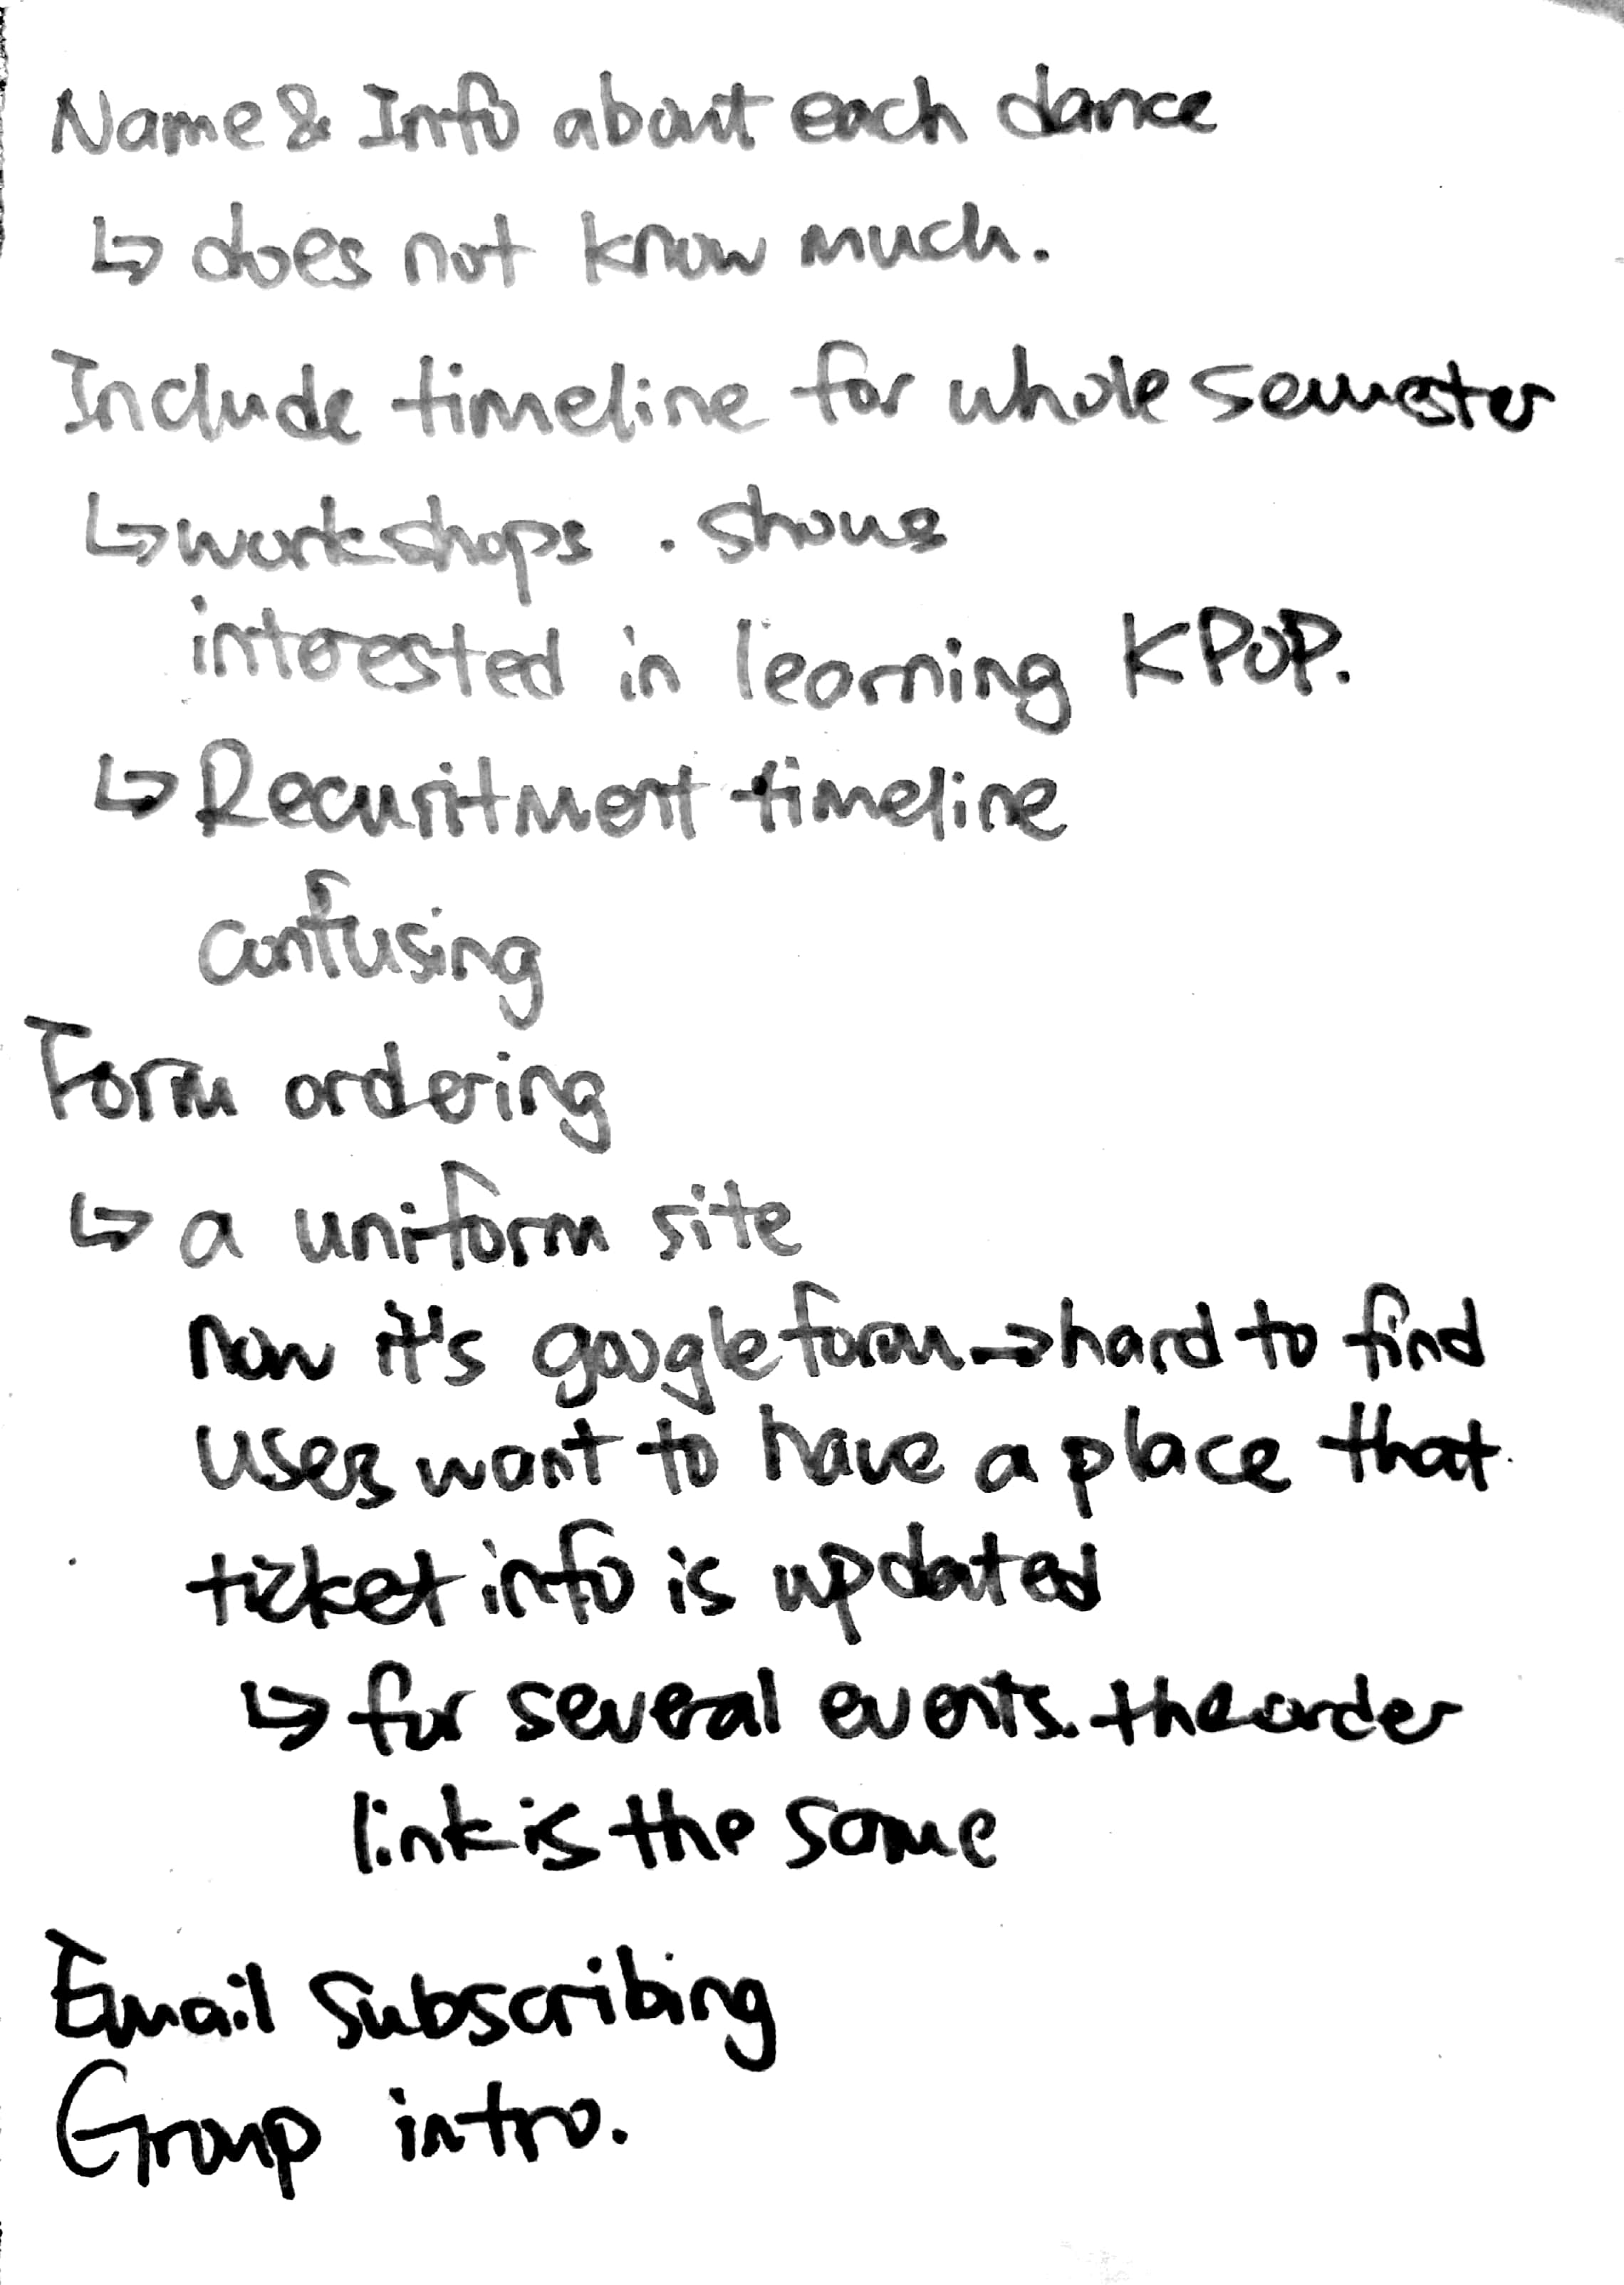 Name & Info about each dance
↳ does not know much.
Include timeline for whole semester
↳ workshops . shows
interested in learning KPOP.
↳ Recuritment timeline
confusing
Form ordering
↳ a uniform site
now it's google form → hard to find
users want to have a place that
ticket info is updated
↳ for several events. the order
link is the same
Email Subscribing
Group intro.